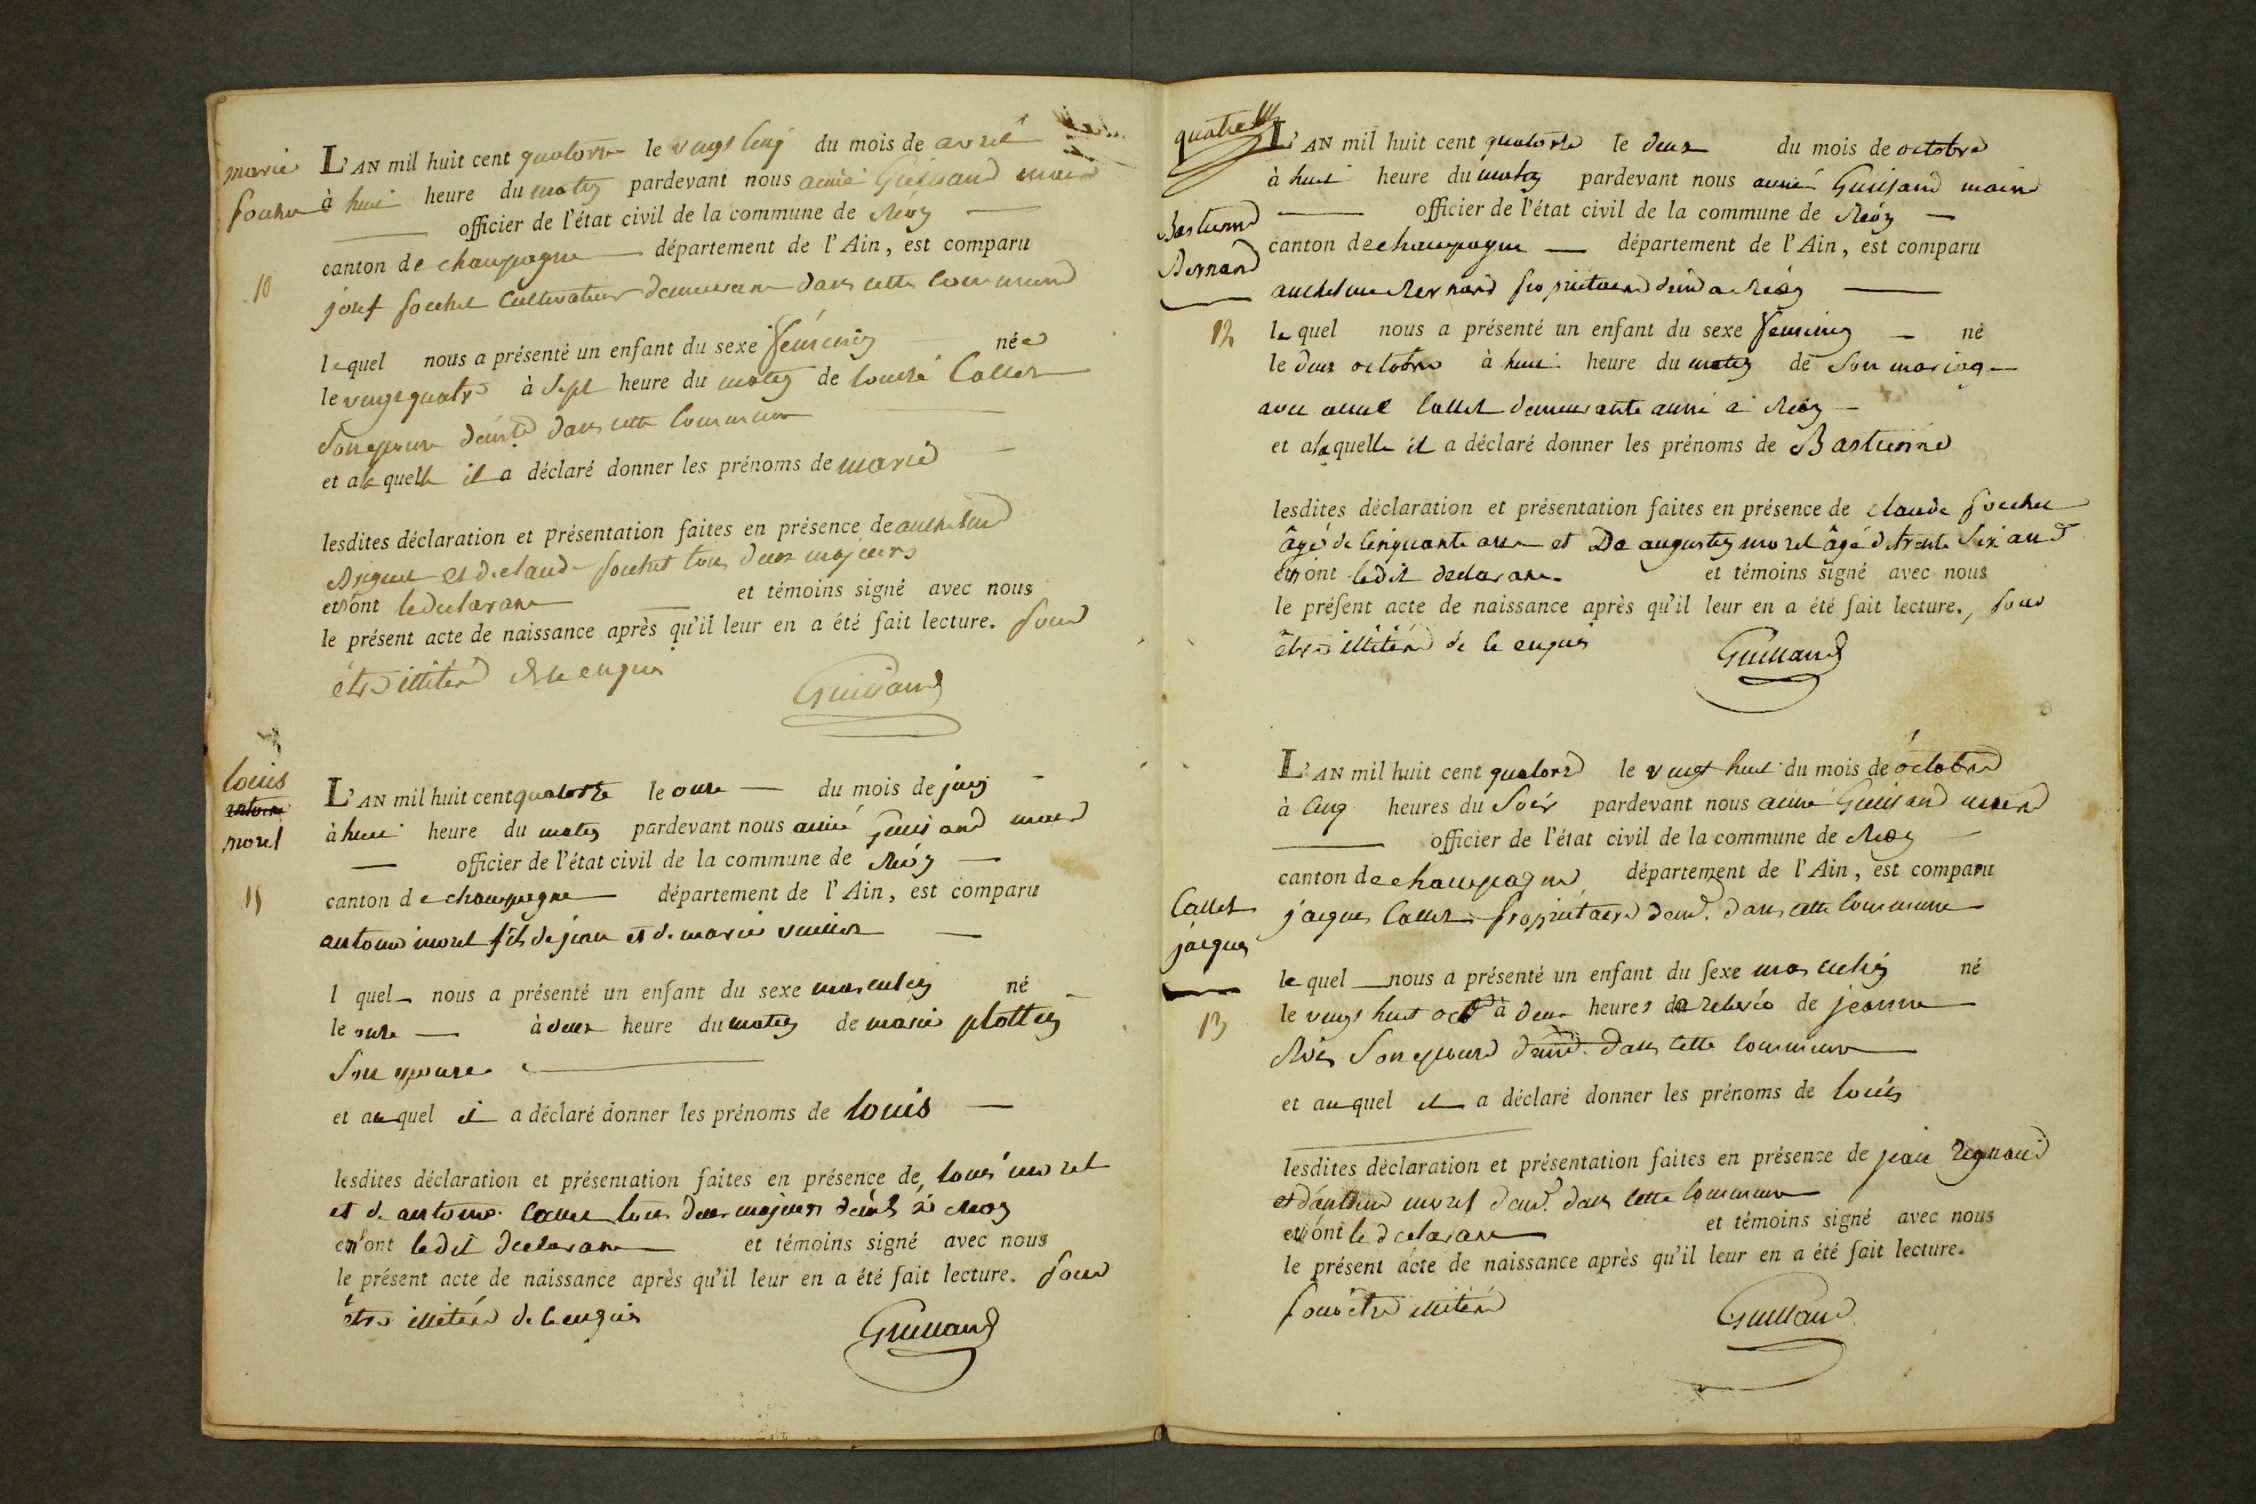 marie
fochet
10
L'AN mil huit cent quatorze le vingt cinq du mois de avril
à huit heure du matin pardevant nous aimé Guillaud maire
officier de l'état civil de la commune de
canton de champagne département de l'Ain, est comparu
josef fochet cultivateur demeurant dans cette commune
lequel nous a présenté un enfant du sexe féminin née
le vingt quatre à sept heure du matin de louise Callet
son epouse dans cette commune
et a la quelle il a déclaré donner les prénoms de marie
lesdites déclaration et présentation faites en présence de anthelme
et de claude fochet tous deux majeurs
et n'ont le declarant et témoins signé avec nous
le présent acte de naissance après qu'il leur en a été fait lecture. pour
être illiteré de ce enquis
Guillaud
louis
morel
11
L'AN mil huit cent quatorze le onze du mois de juin
à huit heure du matin pardevant nous aimé Guillaud maire
officier de l'état civil de la commune de
canton de champagne département de l'Ain, est comparu
antoine morel fils de jean et de marie
l quel nous a présenté un enfant du sexe masculin né
le onze à deux heure du matin de marie plottin
son epouse
et au quel il a déclaré donner les prénoms de louis
lesdites déclaration et présentation faites en présence de louis morel
et de antoine Callet tous deux majeurs à
et n'ont ledit declarant et témoins signé avec nous
le présent acte de naissance après qu'il leur en a été fait lecture. pour
être illiteré de ce enquis
Guillaud
quatre
Bastienne
Bernard
12
L'AN mil huit cent quatorze le deux du mois de octobre
à huit heure du matin pardevant nous aimé Guillaud maire
officier de l'état civil de la commune de
canton de champagne département de l'Ain, est comparu
anthelme Bernard propriétaire
le quel nous a présenté un enfant du sexe feminin né
le deux octobre à huit heure du matin de son mariage
avec Callet demeurante aussi à
et a la quelle il a déclaré donner les prénoms de Bastienne
lesdites déclaration et présentation faites en présence de claude fochet
âgé de cinquante ans et De augustin morel âgé de trente six ans
et n'ont ledit declarant et témoins signé avec nous
le présent acte de naissance après qu'il leur en a été fait lecture., pour
être illiteré de ce enquis
Guillaud
Callet
jacques
13
L'AN mil huit cent quatorze le vingt huit du mois de octobre
à cinq heures du soir pardevant nous aimé Guillaud maire
officier de l'état civil de la commune de
canton de champagne département de l'Ain, est comparu
jacques Callet propriétaire dem. dans cette commune
le quel nous a présenté un enfant du sexe masculin né
le vingt huit oct à deux heures de relevée de jeanne
son epouse dans cette commune
et au quel il a déclaré donner les prénoms de louis
lesdites déclaration et présentation faites en présence de jean
morel dem. dans cette commune
et n'ont le declarant et témoins signé avec nous
le présent acte de naissance après qu'il leur en a été fait lecture.
pour être illiteré
Guillaud